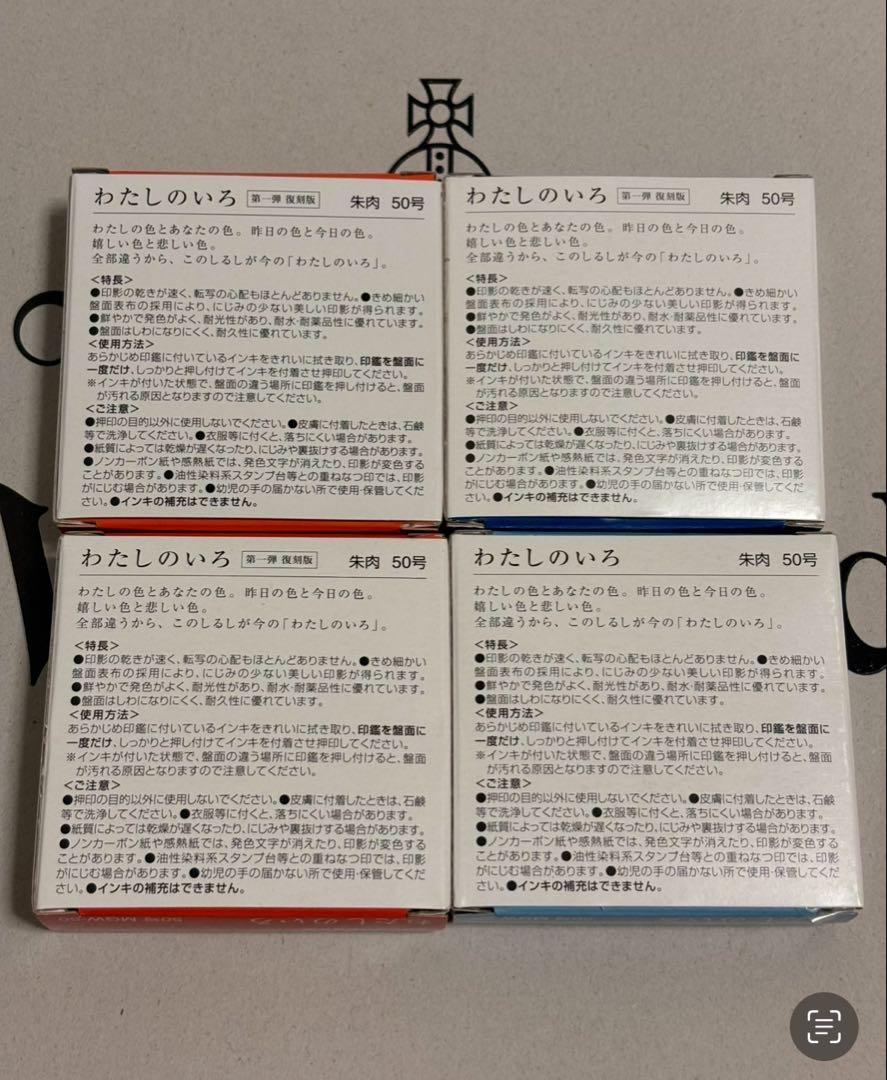 わたしのいろ 第一弾 復刻版 朱肉 50号
わたしの色とあなたの色。昨日の色と今日の色。
嬉しい色と悲しい色。
全部違うから、このしるしが今の「わたしのいろ」。
<特長>
●印影の乾きが速く、転写の心配もほとんどありません。●きめ細かい
盤面表布の採用により、にじみの少ない美しい印影が得られます。
●鮮やかで発色がよく、耐光性があり、耐水・耐薬品性に優れています。
●盤面はしわになりにくく、耐久性に優れています。
<使用方法>
あらかじめ印鑑に付いているインキをきれいに拭き取り、印鑑を盤面に
一度だけ、しっかりと押し付けてインキを付着させ押印してください。
※インキが付いた状態で、盤面の違う場所に印鑑を押し付けると、盤面
が汚れる原因となりますので注意してください。
<ご注意>
●押印の目的以外に使用しないでください。●皮膚に付着したときは、石鹸
等で洗浄してください。●衣服等に付くと、落ちにくい場合があります。
●紙質によっては乾燥が遅くなったり、にじみや裏抜けする場合があります。
●ノンカーボン紙や感熱紙では、発色文字が消えたり、印影が変色する
ことがあります。●油性染料系スタンプ台等との重ねなつ印では、印影
がにじむ場合があります。●幼児の手の届かない所で使用・保管してくだ
さい。●インキの補充はできません。
わたしのいろ 第一弾 復刻版 朱肉 50号
わたしの色とあなたの色。昨日の色と今日の色。
嬉しい色と悲しい色。
全部違うから、このしるしが今の「わたしのいろ」。
<特長>
●印影の乾きが速く、転写の心配もほとんどありません。●きめ細かい
盤面表布の採用により、にじみの少ない美しい印影が得られます。
●鮮やかで発色がよく、耐光性があり、耐水・耐薬品性に優れています。
●盤面はしわになりにくく、耐久性に優れています。
<使用方法>
あらかじめ印鑑に付いているインキをきれいに拭き取り、印鑑を盤面に
一度だけ、しっかりと押し付けてインキを付着させ押印してください。
※インキが付いた状態で、盤面の違う場所に印鑑を押し付けると、盤面
が汚れる原因となりますので注意してください。
<ご注意>
●押印の目的以外に使用しないでください。●皮膚に付着したときは、石鹸
等で洗浄してください。●衣服等に付くと、落ちにくい場合があります。
●紙質によっては乾燥が遅くなったり、にじみや裏抜けする場合があります。
●ノンカーボン紙や感熱紙では、発色文字が消えたり、印影が変色する
ことがあります。●油性染料系スタンプ台等との重ねなつ印では、印影
がにじむ場合があります。●幼児の手の届かない所で使用・保管してくだ
さい。●インキの補充はできません。
わたしのいろ 第一弾 復刻版 朱肉 50号
わたしの色とあなたの色。昨日の色と今日の色。
嬉しい色と悲しい色。
全部違うから、このしるしが今の「わたしのいろ」。
<特長>
●印影の乾きが速く、転写の心配もほとんどありません。●きめ細かい
盤面表布の採用により、にじみの少ない美しい印影が得られます。
●鮮やかで発色がよく、耐光性があり、耐水・耐薬品性に優れています。
●盤面はしわになりにくく、耐久性に優れています。
<使用方法>
あらかじめ印鑑に付いているインキをきれいに拭き取り、印鑑を盤面に
一度だけ、しっかりと押し付けてインキを付着させ押印してください。
※インキが付いた状態で、盤面の違う場所に印鑑を押し付けると、盤面
が汚れる原因となりますので注意してください。
<ご注意>
●押印の目的以外に使用しないでください。●皮膚に付着したときは、石鹸
等で洗浄してください。●衣服等に付くと、落ちにくい場合があります。
●紙質によっては乾燥が遅くなったり、にじみや裏抜けする場合があります。
●ノンカーボン紙や感熱紙では、発色文字が消えたり、印影が変色する
ことがあります。●油性染料系スタンプ台等との重ねなつ印では、印影
がにじむ場合があります。●幼児の手の届かない所で使用・保管してくだ
さい。●インキの補充はできません。
わたしのいろ 50号 MGW-50
わたしのいろ 朱肉 50号
わたしの色とあなたの色。昨日の色と今日の色。
嬉しい色と悲しい色。
全部違うから、このしるしが今の「わたしのいろ」。
<特長>
●印影の乾きが速く、転写の心配もほとんどありません。●きめ細かい
盤面表布の採用により、にじみの少ない美しい印影が得られます。
●鮮やかで発色がよく、耐光性があり、耐水・耐薬品性に優れています。
●盤面はしわになりにくく、耐久性に優れています。
<使用方法>
あらかじめ印鑑に付いているインキをきれいに拭き取り、印鑑を盤面に
一度だけ、しっかりと押し付けてインキを付着させ押印してください。
※インキが付いた状態で、盤面の違う場所に印鑑を押し付けると、盤面
が汚れる原因となりますので注意してください。
<ご注意>
●押印の目的以外に使用しないでください。●皮膚に付着したときは、石鹸
等で洗浄してください。●衣服等に付くと、落ちにくい場合があります。
●紙質によっては乾燥が遅くなったり、にじみや裏抜けする場合があります。
●ノンカーボン紙や感熱紙では、発色文字が消えたり、印影が変色する
ことがあります。●油性染料系スタンプ台等との重ねなつ印では、印影
がにじむ場合があります。●幼児の手の届かない所で使用・保管してくだ
さい。●インキの補充はできません。